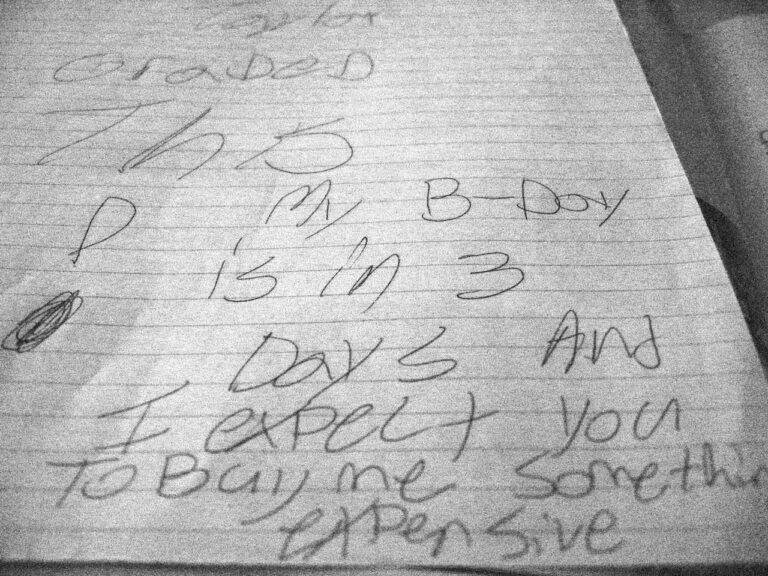 Taylor
GraDeD
This
P My B-Day
is in 3
Days And
I expect you
To Buy me Somethin
expensive